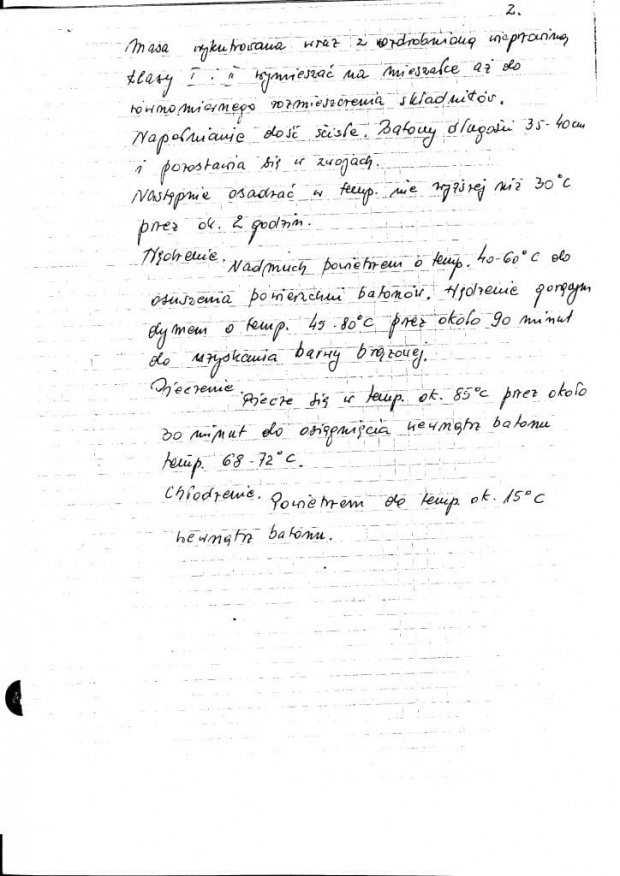 2.
Masa wykutrowana wraz z rozdrobnioną wieprzowiną
klasy I i II wymieszać na mieszałce aż do
równomiernego rozmieszczenia składników.
Napełnianie dość ścisłe. Batony długości 35-40cm
i pozostawia się w zwojach.
Następnie osadzać w temp. nie wyższej niż 30°C
przez ok. 2 godzin.
Wędzenie. Nadmuch powietrzem o temp. 40-60°C do
osuszenia powierzchni batonów. Wędzenie gorącym
dymem o temp. 45-80°C przez około 90 minut
do uzyskania barwy brązowej.
Pieczenie. Piecze się w temp. ok. 85°C przez około
30 minut do osiągnięcia wewnątrz batonu
temp. 68-72°C.
Chłodzenie. Powietrzem do temp. ok. 15°C
wewnątrz batonu.